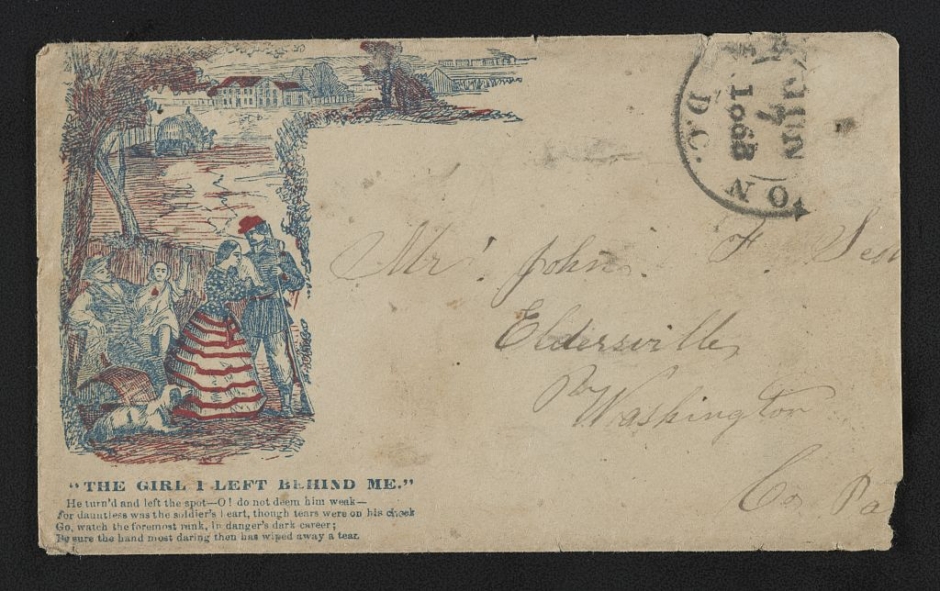 JUN
7
1863
D.C.
ON
Mr. John F.
Eldersville
Washington
Co Pa
"THE GIRL I LEFT BEHIND ME."
He turn'd and left the spot—O! do not deem him weak—
for dauntless was the soldier's heart, though tears were on his cheek
Go, watch the foremost rank, in danger's dark career;
Be sure the hand most daring then has wiped away a tear.